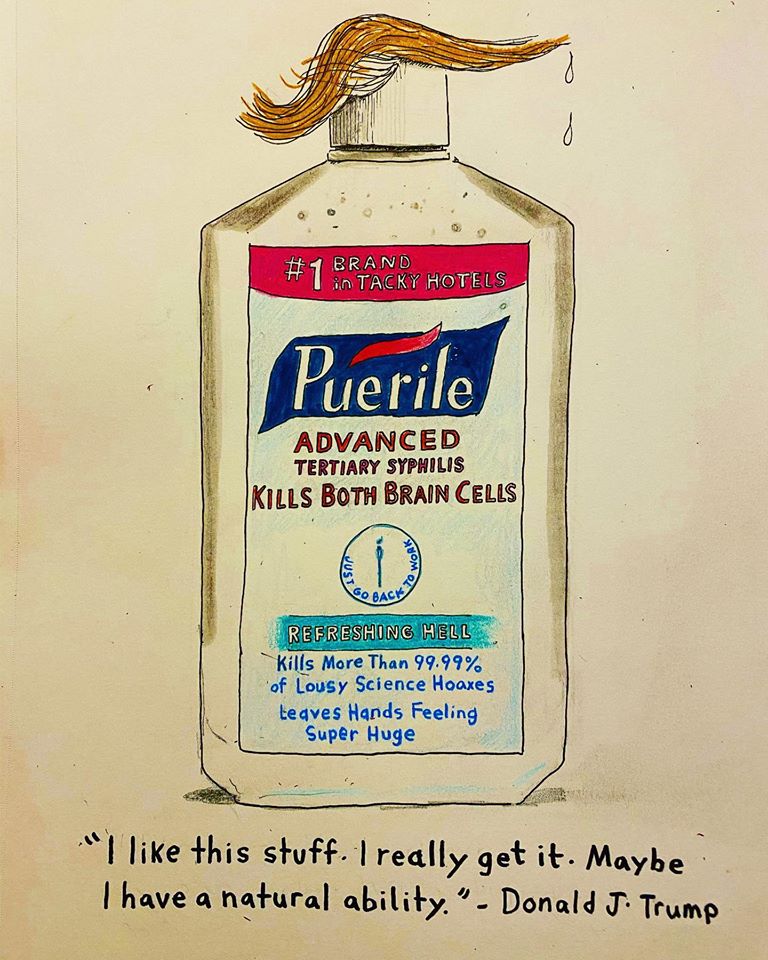 #1 BRAND
in TACKY HOTELS
Puerile
ADVANCED
TERTIARY SYPHILIS
KILLS BOTH BRAIN CELLS
JUST GO BACK TO WORK
REFRESHING HELL
Kills More Than 99.99%
of Lousy Science Hoaxes
Leaves Hands Feeling
Super Huge
"I like this stuff. I really get it. Maybe
I have a natural ability." - Donald J. Trump